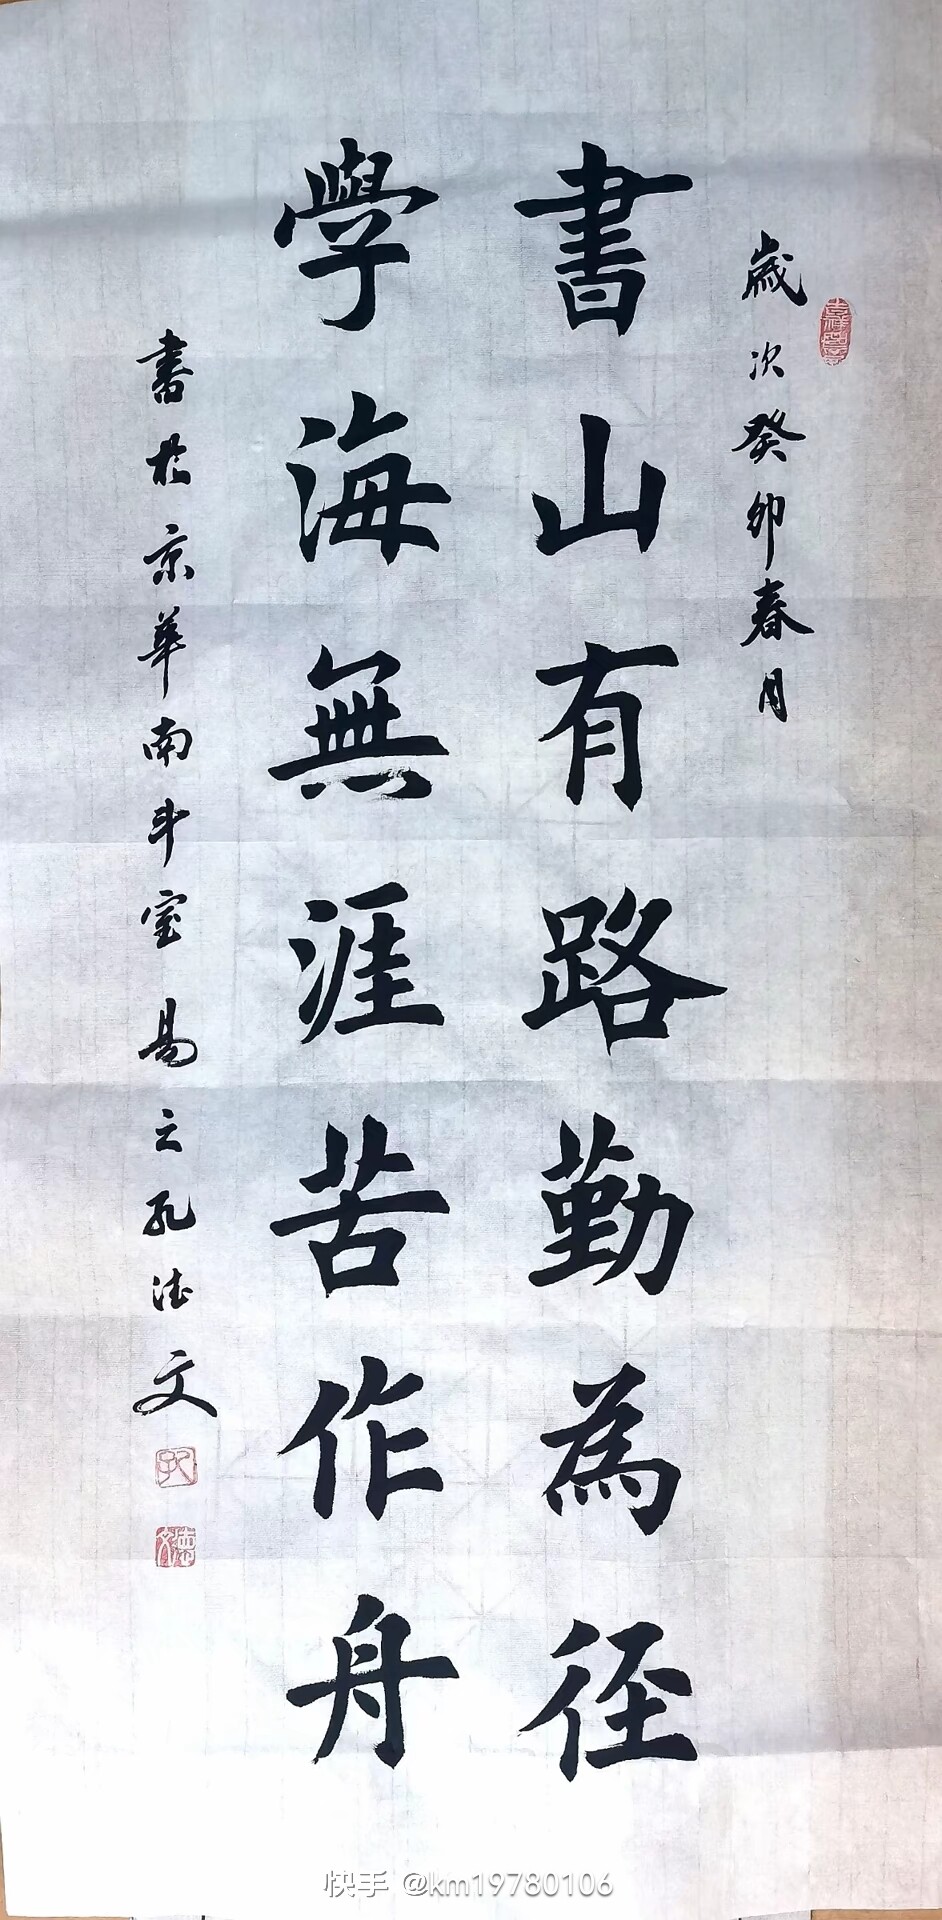 歲次癸卯春月
書山有路勤為径
學海無涯苦作舟
書於京華南斗室易之孔德文
孔
德文
快手 @km19780106